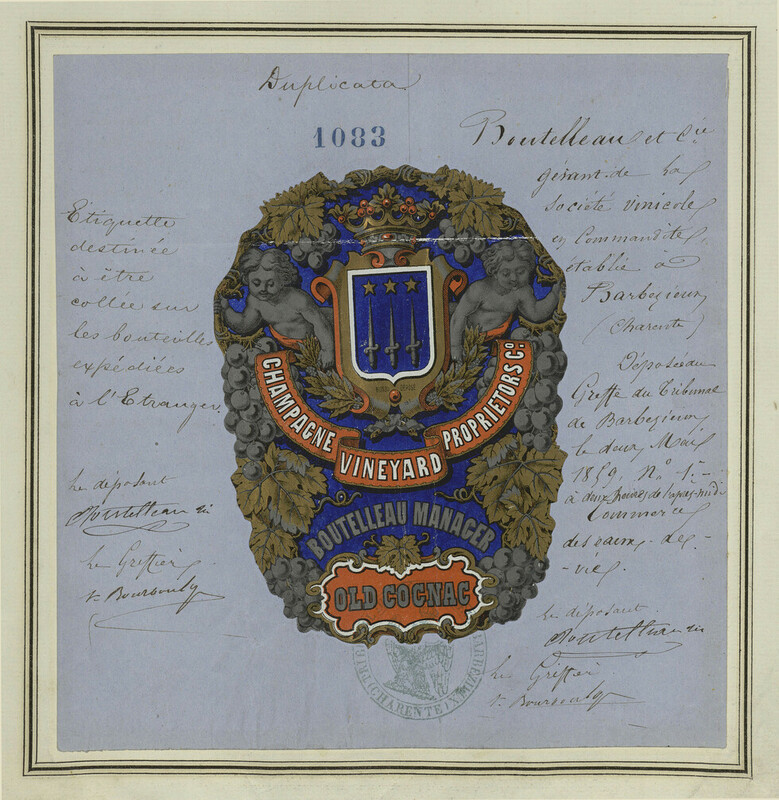 Duplicata
1083
Boutelleau et Cie
gérant de la
société vinicole
en Commandite,
établie à
Barbezieux
(Charente)
Etiquette
destinée
à être
collée sur
les bouteilles
expédiées
à l'Etranger.
CHAMPAGNE VINEYARD PROPRIETORS Co.
BOUTELLEAU MANAGER
OLD COGNAC
Déposé au
Greffe du Tribunal
de Barbezieux
le deux Mai
1859, No 1.-
à deux heures de l'après-midi
Commerce
des eaux-de-
-vie.
le déposant
Boutelleau
le Greffier
le déposant
Boutelleau
le Greffier
(CHARENTE)